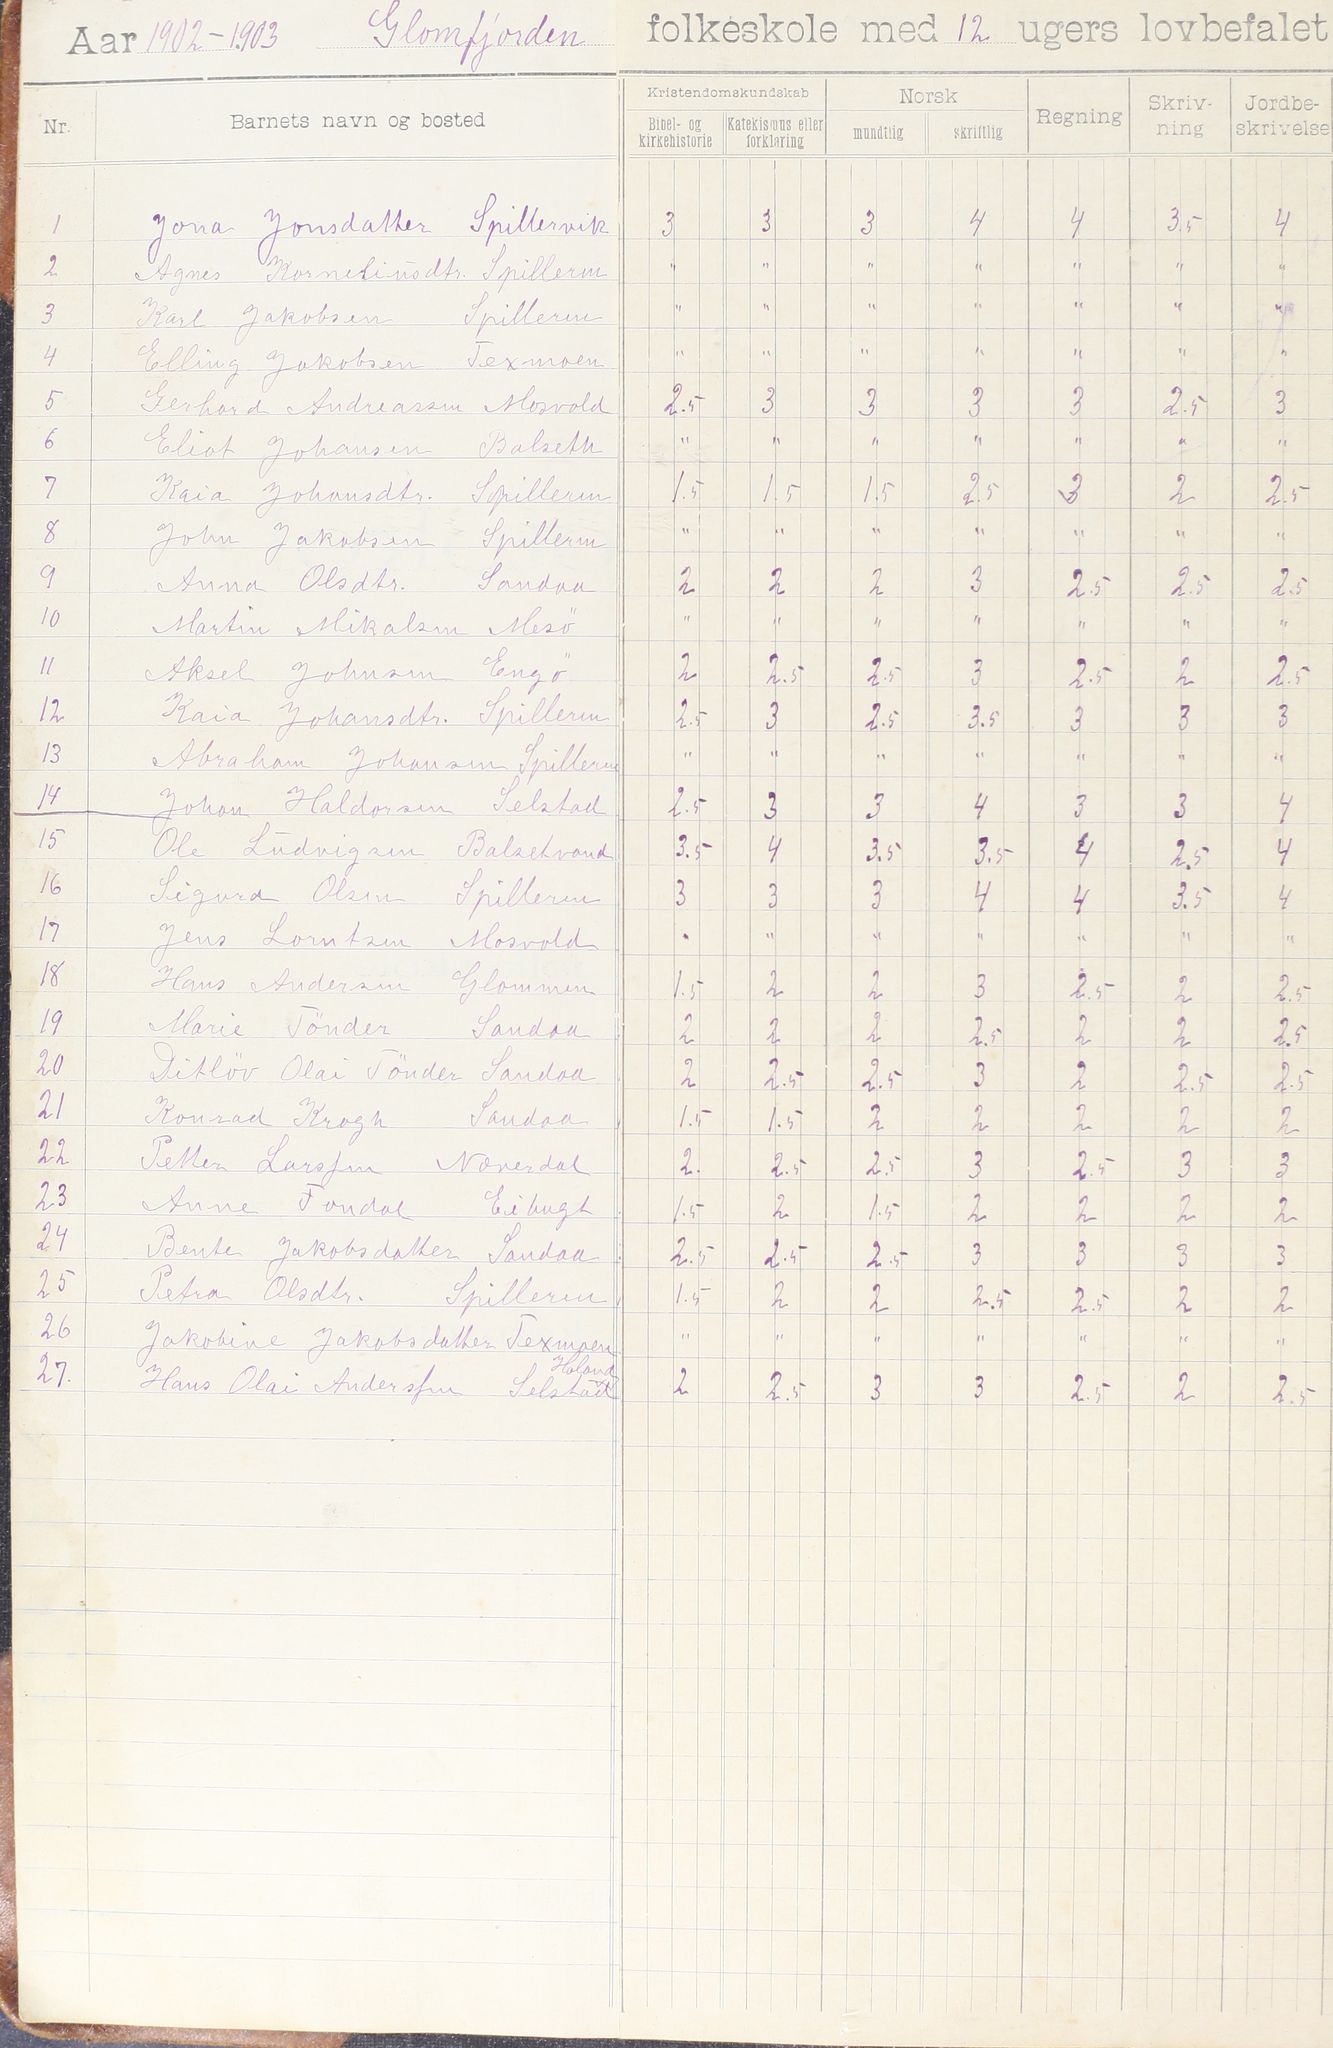 Aar 1902-1903 Glomfjorden folkeskole med 12 ugers lovbefalet
Nr. Barnets navn og bosted Kristendomskundskab Norsk Regning Skriv-ning Jordbe-skrivelse
Bibel- og kirkehistorie Katekismus eller forklaring mundtlig skriftlig
1 Jona Jonsdatter Spillervik 3 3 3 4 4 3.5 4
2 Agnes Korneliusdtr. Spillerm " " " " " " "
3 Karl Jakobsen Spillerm " " " " " " "
4 Elling Jakobsen Texmoen " " " " " " "
5 Gerhard Andreassen Mosvold 2.5 3 3 3 3 2.5 3
6 Eliot Johansen Balseth " " " " " " "
7 Kaia Johansdtr. Spillerm 1.5 1.5 1.5 2.5 3 2 2.5
8 John Jakobsen Spillerm " " " " " " "
9 Anna Olsdtr. Sandaa 2 2 2 3 2.5 2.5 2.5
10 Martin Mikalsen Mesö " " " " " " "
11 Aksel Johnsen Engö 2 2.5 2.5 3 2.5 2 2.5
12 Kaia Johansdtr. Spillerm 2.5 3 2.5 3.5 3 3 3
13 Abraham Johansen Spillerm " " " " " " "
14 Johan Haldorsen Selstad 2.5 3 3 4 3 3 4
15 Ole Ludvigsen Balsetvand 3.5 4 3.5 3.5 4 2.5 4
16 Sigurd Olsen Spillerm 3 3 3 4 4 3.5 4
17 Jens Lorntsen Mosvold " " " " " " "
18 Hans Andersen Glommen 1.5 2 2 3 2.5 2 2.5
19 Marie Tönder Sandaa 2 2 2 2.5 2 2 2.5
20 Ditlöv Olai Tönder Sandaa 2 2.5 2.5 3 2 2.5 2.5
21 Konrad Krogh Sandaa 1.5 1.5 2 2 2 2 2
22 Petter Larssen Næverdal 2. 2.5 2.5 3 2.5 3 3
23 Anne Fondal Eibugt 1.5 2 1.5 2 2 2 2
24 Bente Jakobsdatter Sandaa 2.5 2.5 2.5 3 3 3 3
25 Petra Olsdtr. Spillerm 1.5 2 2 2.5 2.5 2 2
26 Jakobine Jakobsdatter Texmoen " " " " " " "
Haland
27. Hans Olai Anderssen Selstad 2 2.5 3 3 2.5 2 2.5